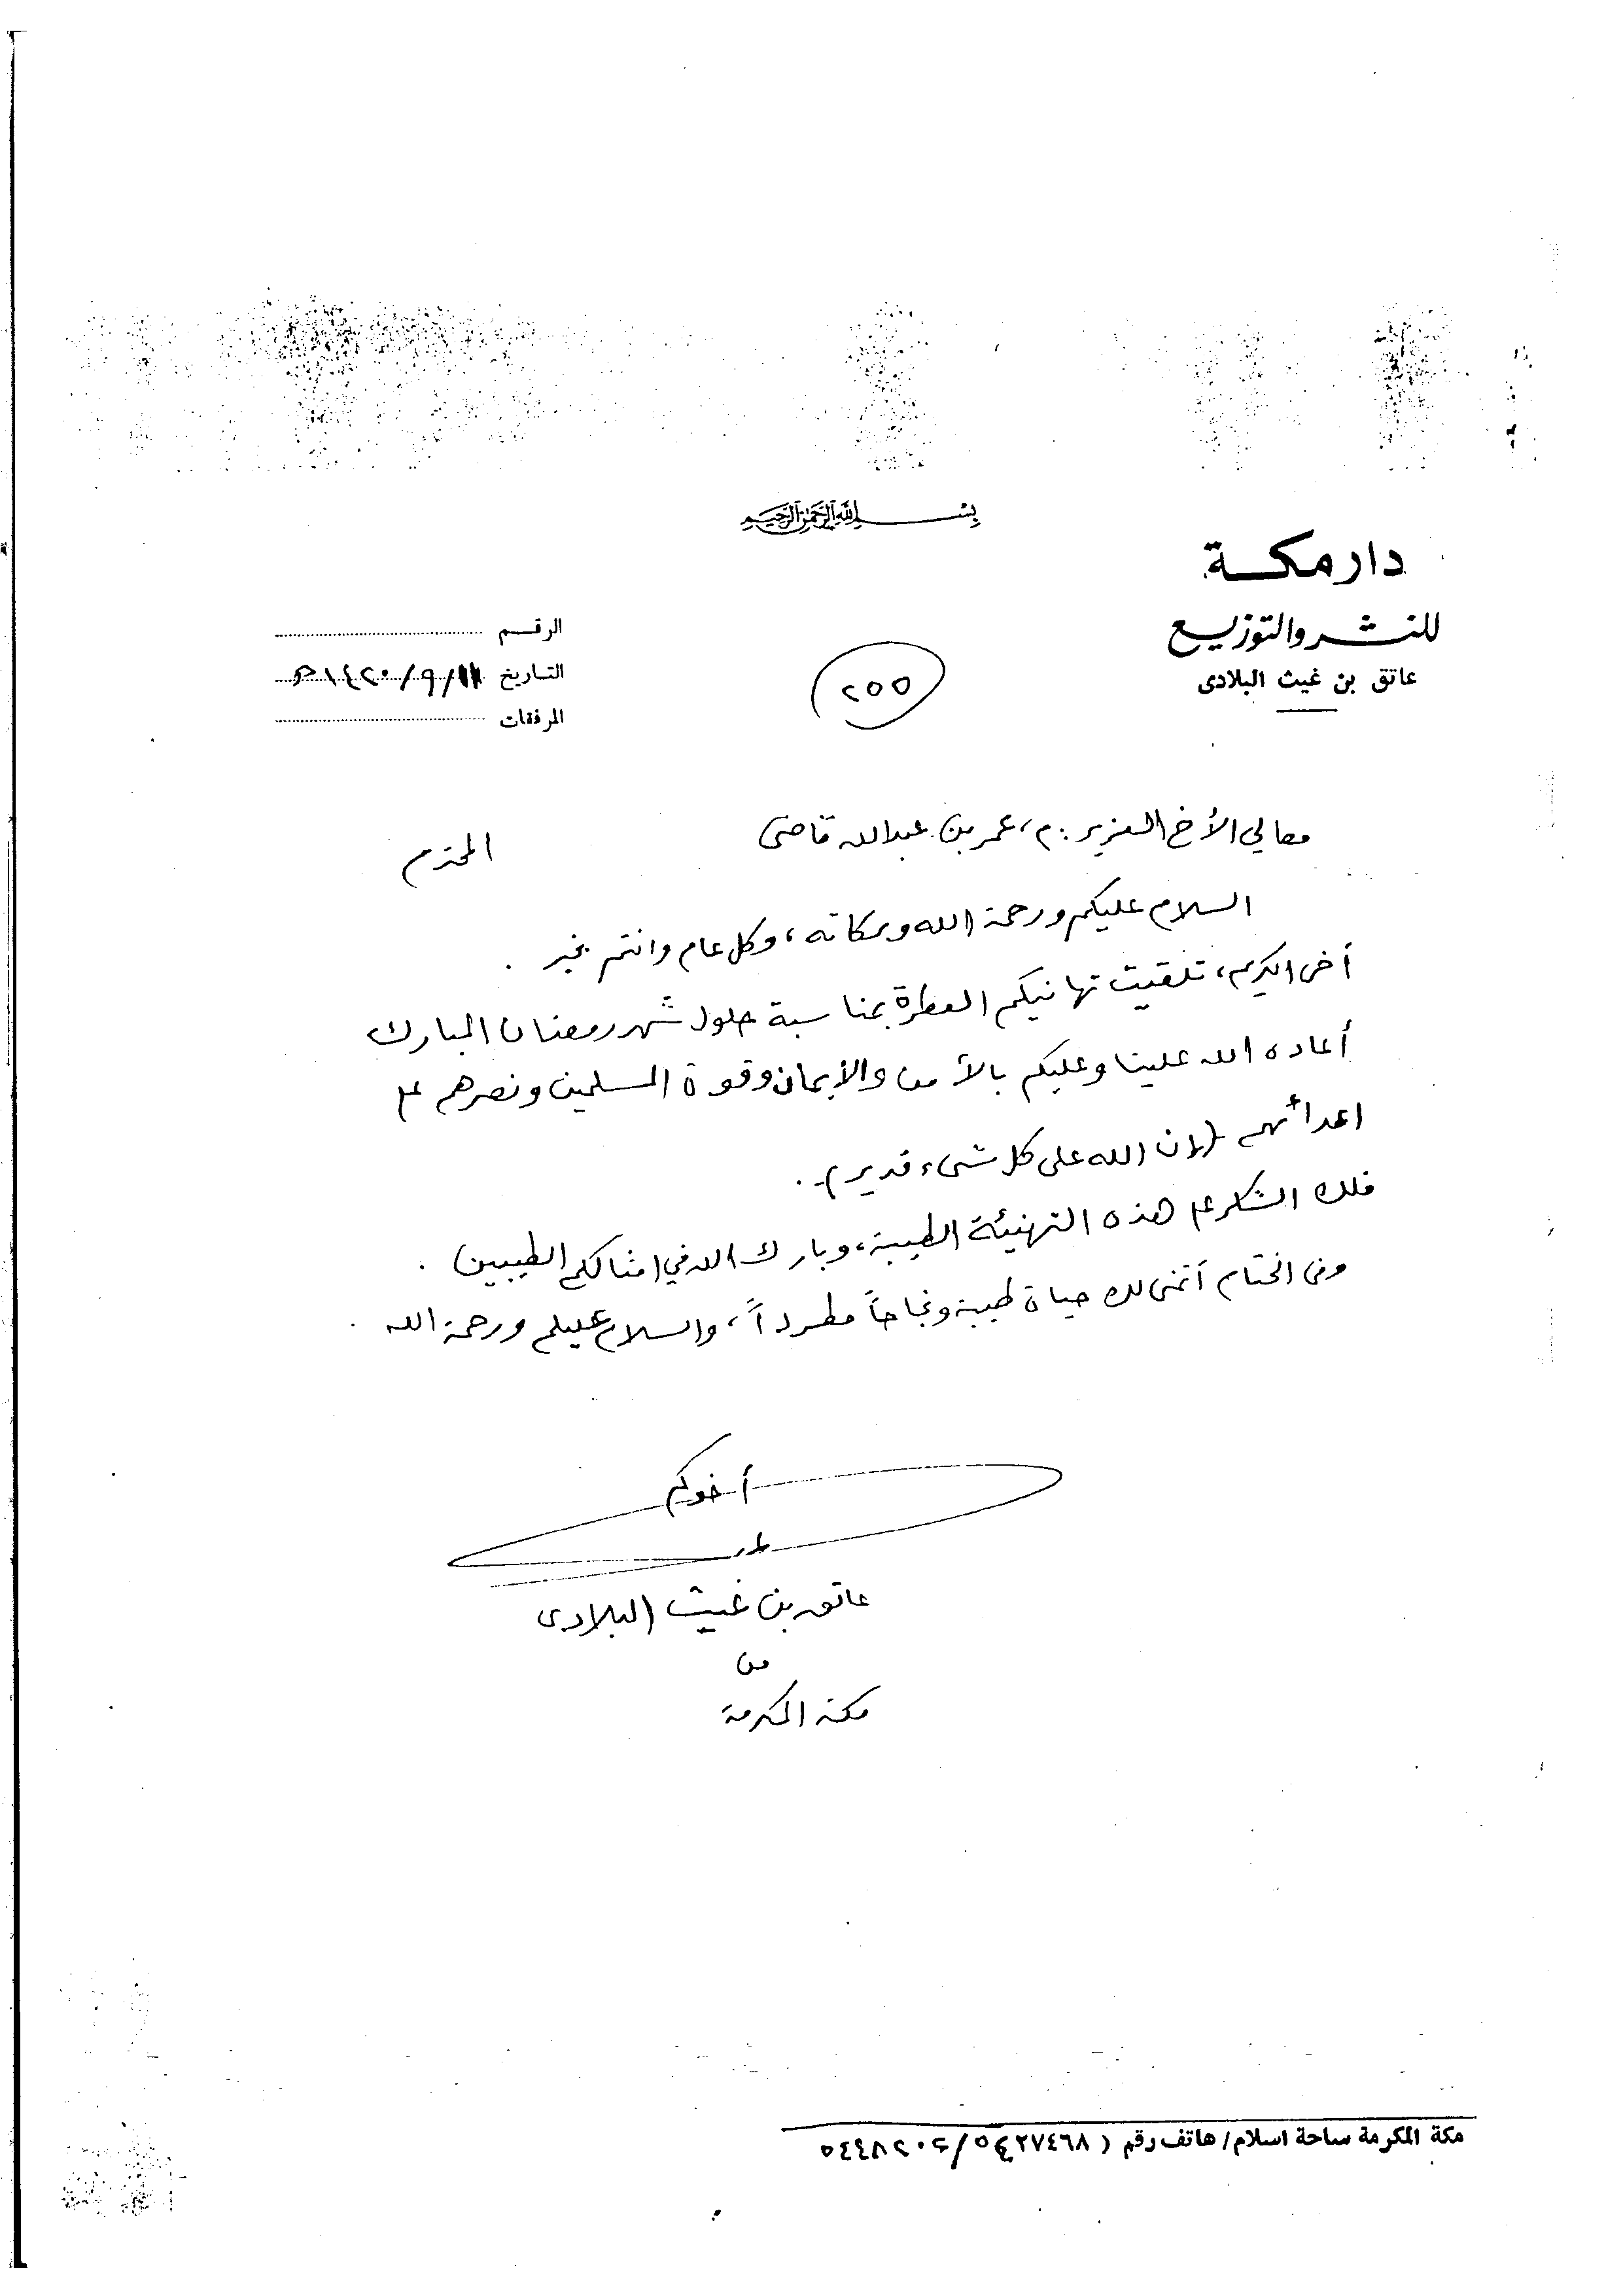 بسم الله الرحمن الرحيم
دار مكة
للنشر والتوزيع
عاتق بن غيث البلادى
الرقم
التاريخ ١١/٩/١٤٢٠هـ
المرفقات
٢٥٥
معالي الأخ العزيز: م، عمر بن عبدالله قاضى
المحترم
السلام عليكم ورحمة الله وبركاته، وكل عام وانتم بخير .
أخى الكريم، تلقيت تهانيكم العطرة بمناسبة حلول شهر رمضان المبارك
أعاده الله علينا وعليكم بالأمن والإيمان وقوة المسلمين ونصرهم على
اعدائهم (إن الله على كل شىء قدير).
فلك الشكر على هذه التهنيئة الطيبة، وبارك الله في امثالكم الطيبين .
وفى الختام أتمنى لك حياة طيبة ونجاحاً مطرداً، والسلام عليكم ورحمة الله .
أخوكم
عاتق بن غيث البلادى
من
مكة المكرمة
مكة المكرمة ساحة اسلام/ هاتف رقم